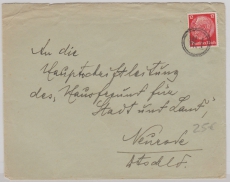 An die
Hauptschriftleitung
des „Hausfreund für
Stadt und Land“,
Neurode